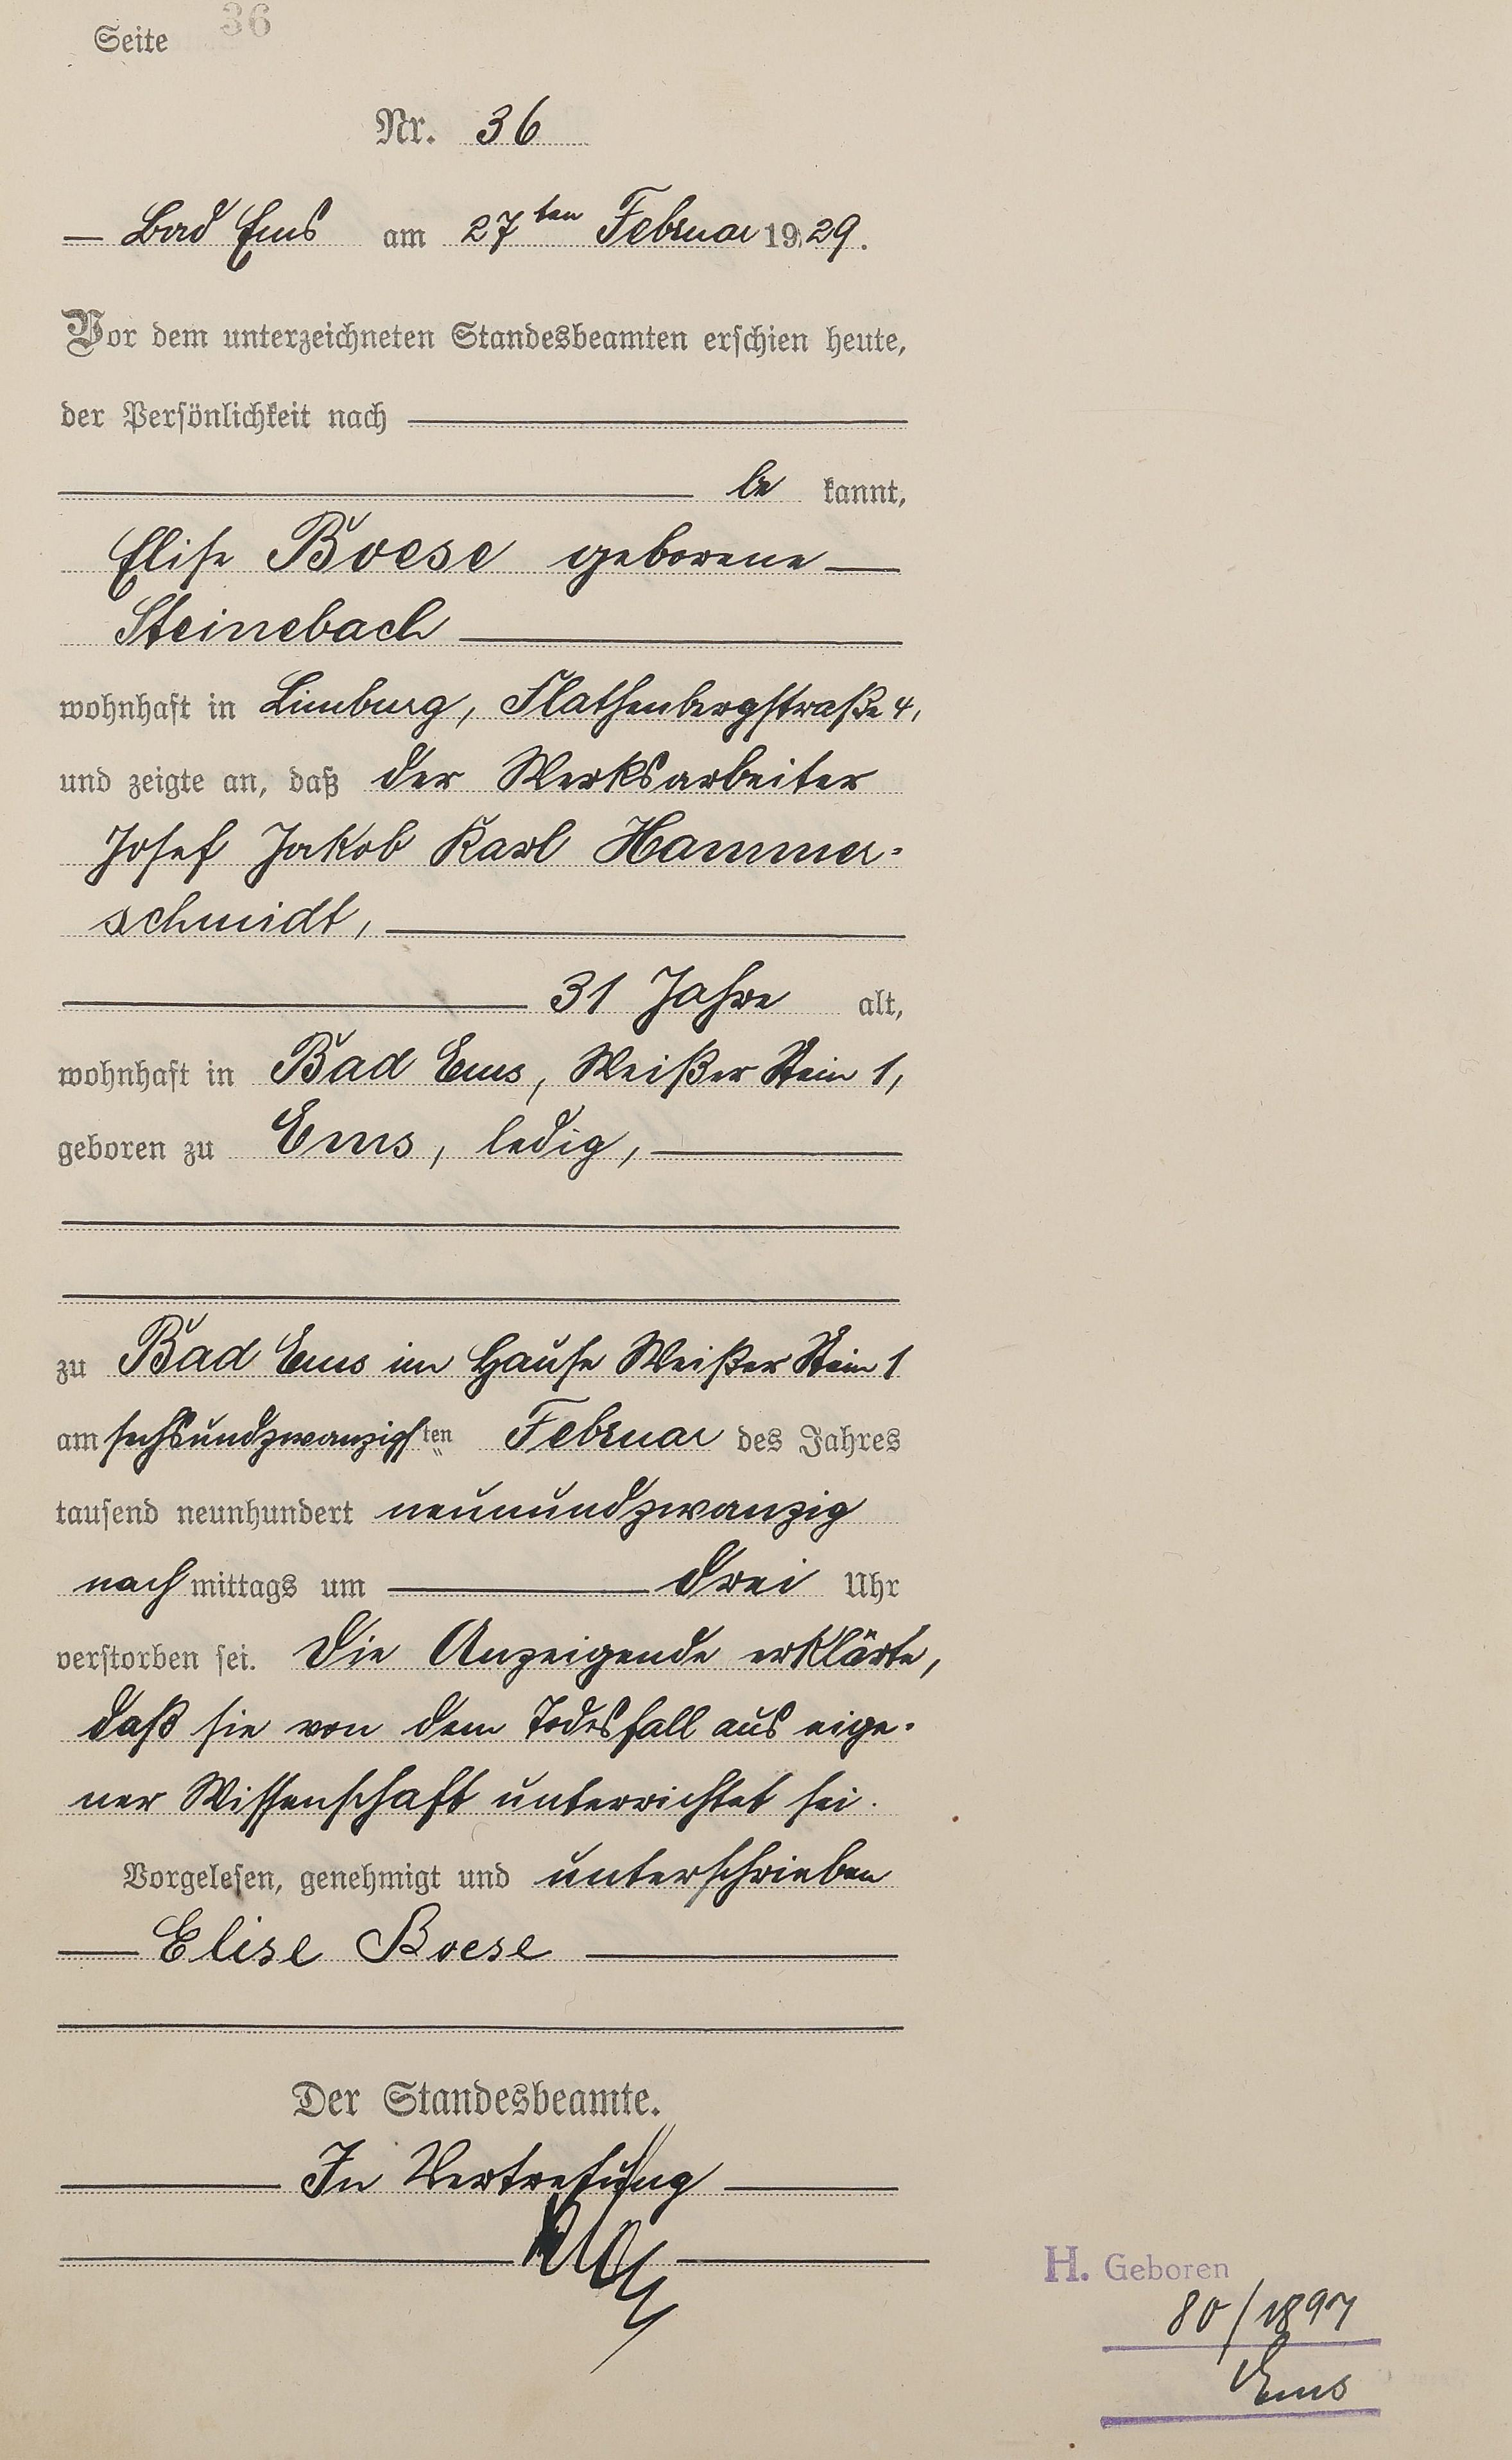 Seite 36
Nr. 36
Bad Ems am 27ten Februar 1929.
Vor dem unterzeichneten Standesbeamten erschien heute,
der Persönlichkeit nach
be kannt,
Elise Boese geborene
Steinebach
wohnhaft in Limburg, Flathenbergstraße 4,
und zeigte an, daß der Werksarbeiter
Josef Jakob Karl Hammer=
schmidt,
31 Jahre alt,
wohnhaft in Bad Ems, Weißer Stein 1,
geboren zu Ems, ledig,
zu Bad Ems im Hause Weißer Stein 1
am sechsundzwanzigsten Februar des Jahres
tausend neunhundert neunundzwanzig
nach mittags um drei Uhr
verstorben sei. Die Anzeigende erklärte,
daß sie von dem Todesfall aus eige-
ner Wissenschaft unterrichtet sei.
Vorgelesen, genehmigt und unterschrieben
Elise Boese
Der Standesbeamte.
In Vertretung
H. Geboren
80/1897
Ems